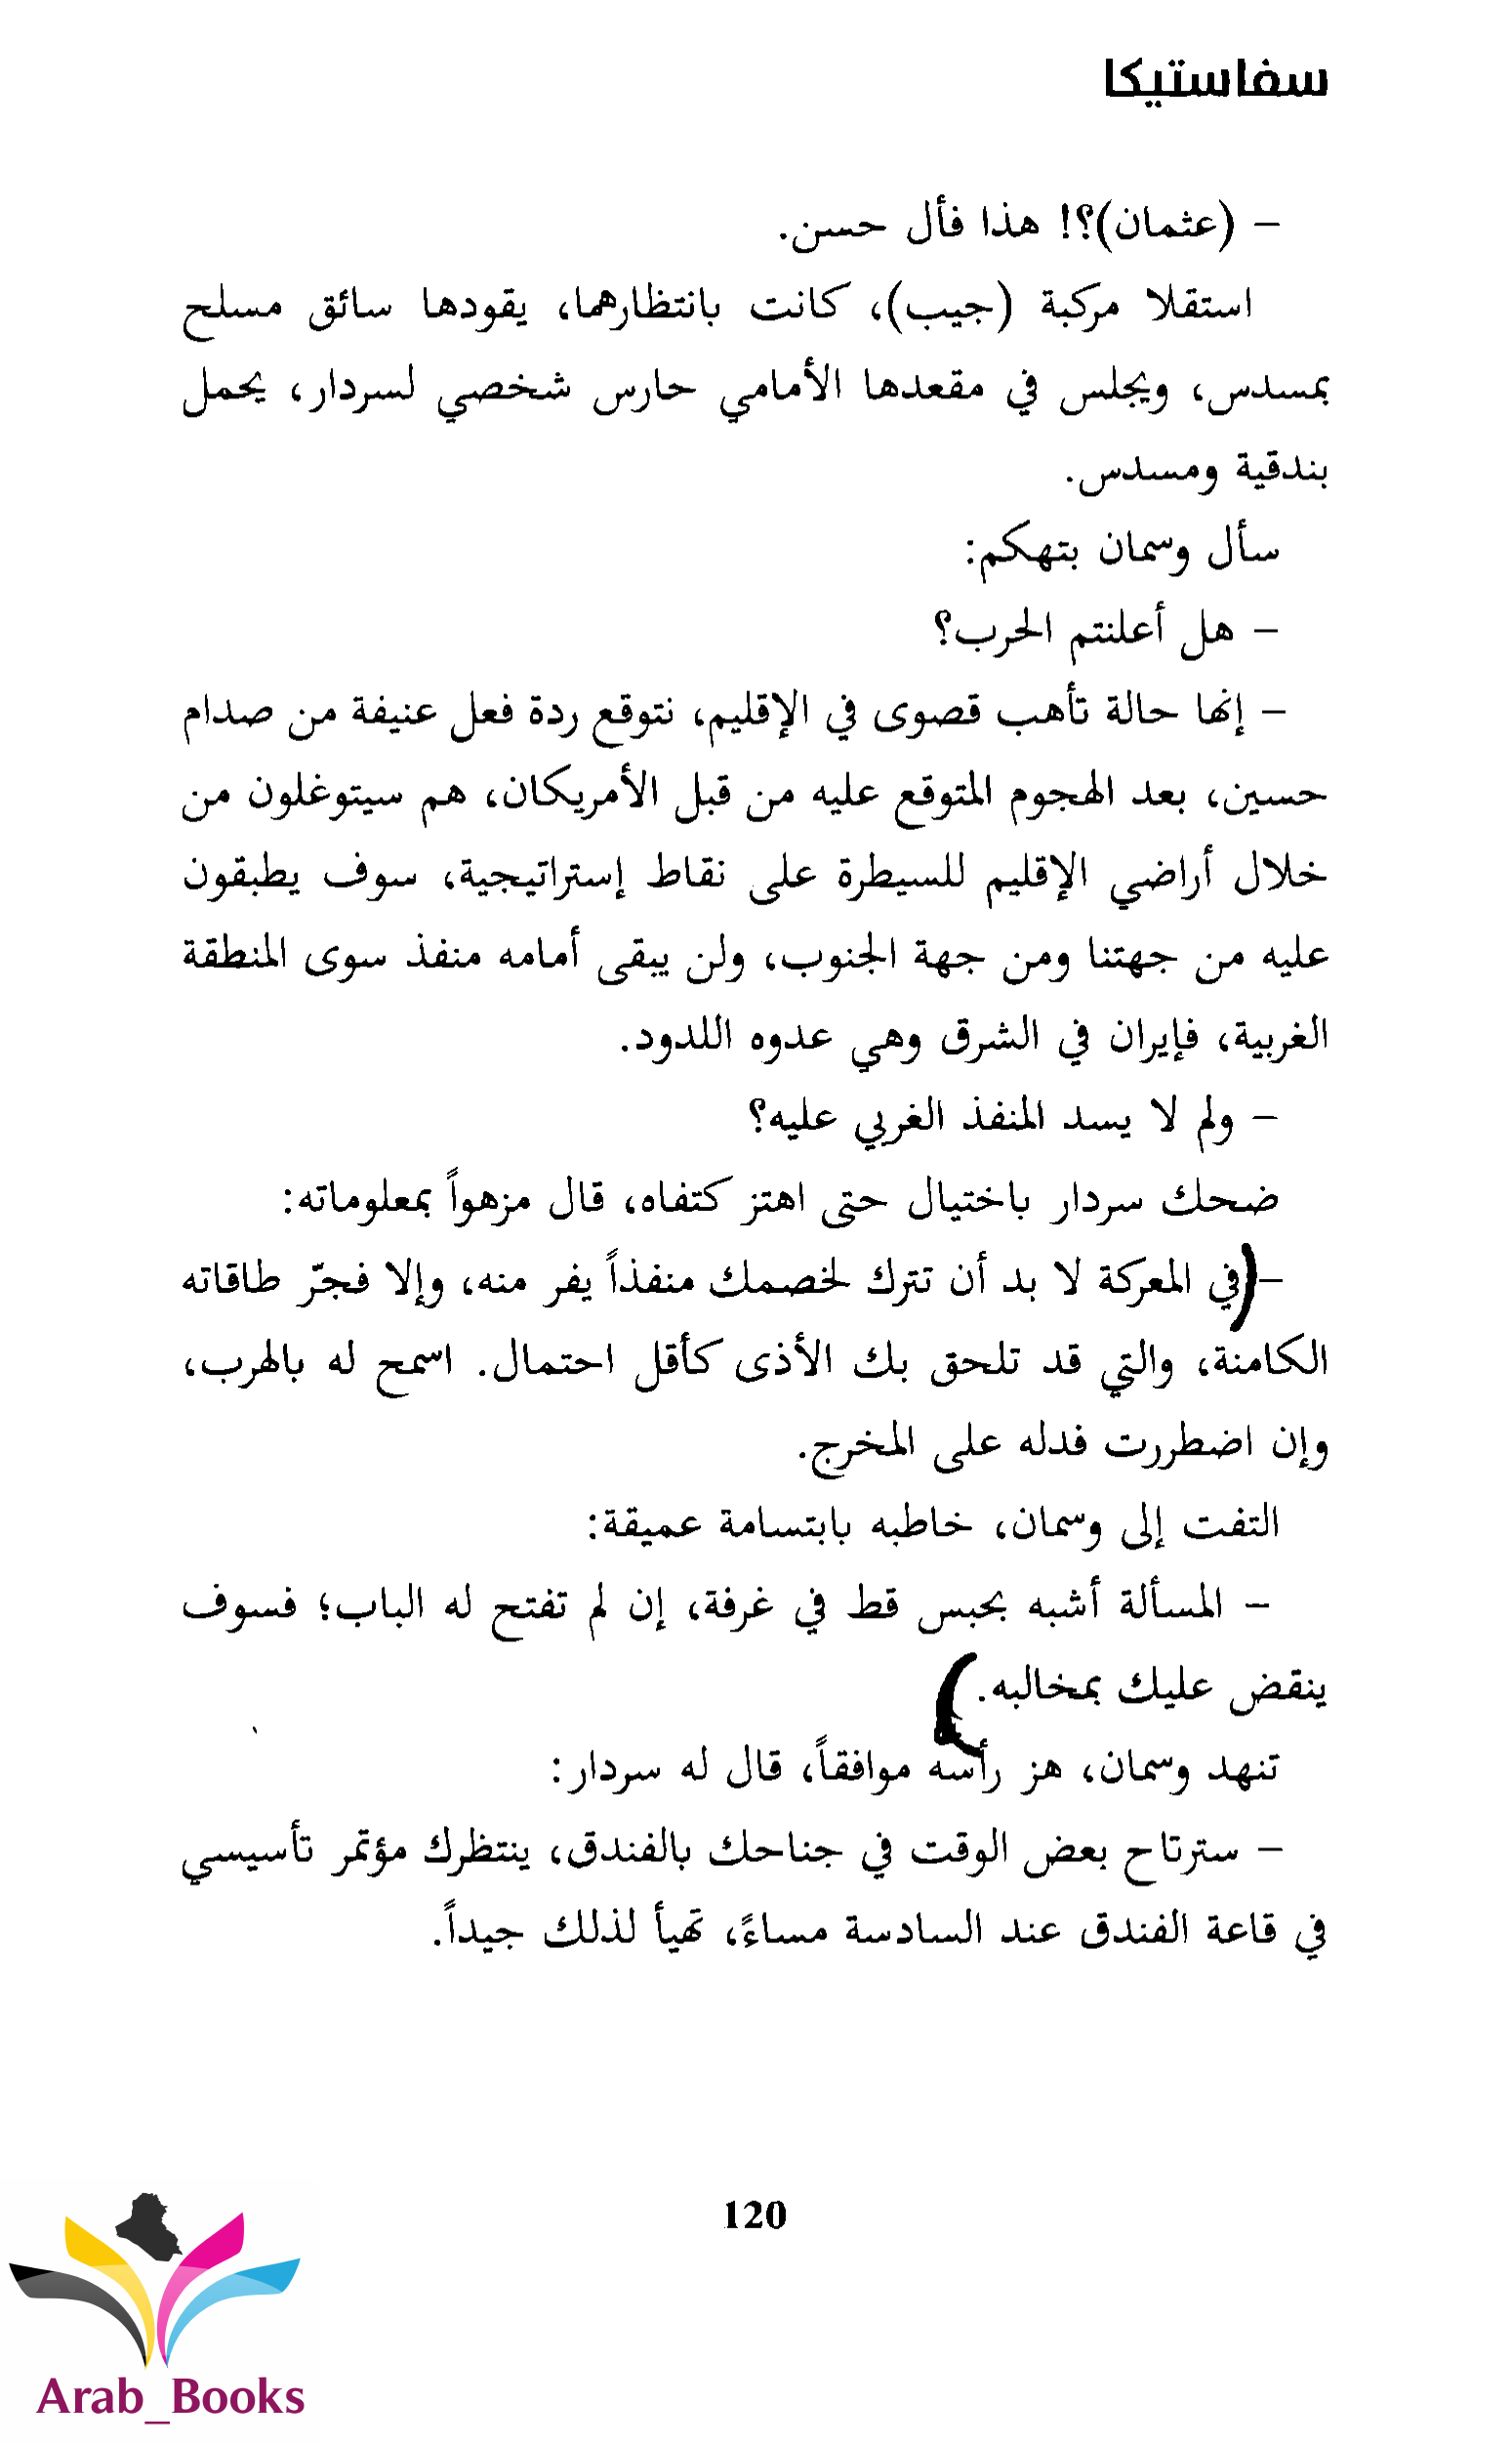 سفاستيكا
– (عثمان)؟! هذا فأل حسن.
استقلا مركبة (جيب)، كانت بانتظارهما، يقودها سائق مسلح
بمسدس، ويجلس في مقعدها الأمامي حارس شخصي لسردار، يحمل
بندقية ومسدس.
سأل وسمان بتهكم:
– هل أعلنتم الحرب؟
– إنها حالة تأهب قصوى في الإقليم، نتوقع ردة فعل عنيفة من صدام
حسين، بعد الهجوم المتوقع عليه من قبل الأمريكان، هم سيتوغلون من
خلال أراضي الإقليم للسيطرة على نقاط إستراتيجية، سوف يطبقون
عليه من جهتنا ومن جهة الجنوب، ولن يبقى أمامه منفذ سوى المنطقة
الغربية، فإيران في الشرق وهي عدوه اللدود.
– ولم لا يسد المنفذ الغربي عليه؟
ضحك سردار باختيال حتى اهتز كتفاه، قال مزهواً بمعلوماته:
–(في المعركة لا بد أن تترك لخصمك منفذاً يفر منه، وإلا فجّر طاقاته
الكامنة، والتي قد تلحق بك الأذى كأقل احتمال. اسمح له بالهرب،
وإن اضطررت فدله على المخرج.
التفت إلى وسمان، خاطبه بابتسامة عميقة:
– المسألة أشبه بحبس قط في غرفة، إن لم تفتح له الباب؛ فسوف
ينقض عليك بمخالبه.)
تنهد وسمان، هز رأسه موافقاً، قال له سردار:
– سترتاح بعض الوقت في جناحك بالفندق، ينتظرك مؤتمر تأسيسي
في قاعة الفندق عند السادسة مساءً، تهيأ لذلك جيداً.
120
Arab_Books